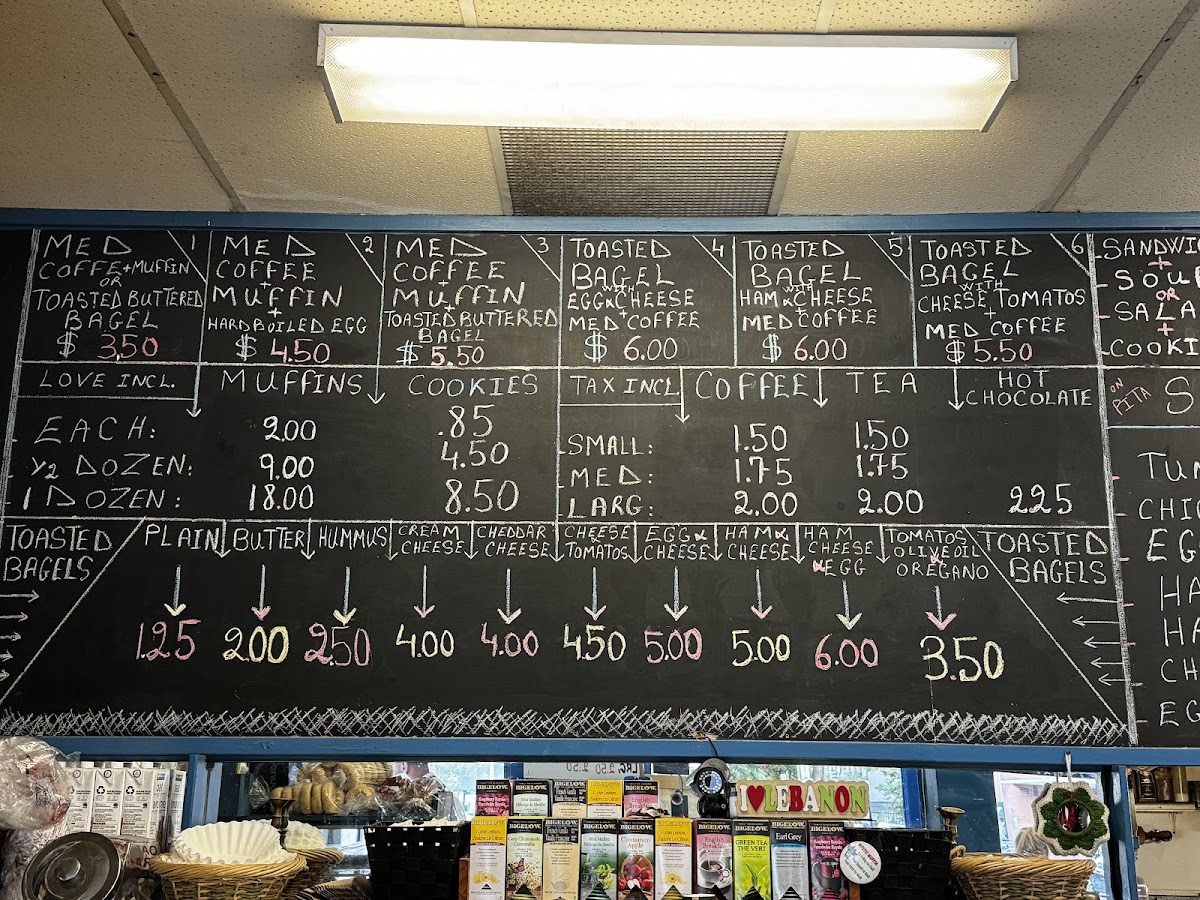 MED 1
COFFE + MUFFIN
OR
TOASTED BUTTERED
BAGEL
$ 3.50
MED 2
COFFEE
+
MUFFIN
+
HARDBOILED EGG
$ 4.50
MED 3
COFFEE
+
MUFFIN
+
TOASTED BUTTERED
BAGEL
$ 5.50
TOASTED 4
BAGEL
WITH
EGG & CHEESE
+
MED COFFEE
$ 6.00
TOASTED 5
BAGEL
WITH
HAM & CHEESE
+
MED COFFEE
$ 6.00
TOASTED 6
BAGEL
WITH
CHEESE, TOMATOS
+
MED COFFEE
$ 5.50
SANDWIC
+
SOU
OR
SALA
+
COOKI
LOVE INCL. MUFFINS COOKIES
EACH: 2.00 .85
1/2 DOZEN: 9.00 4.50
1 DOZEN: 18.00 8.50
TAX INCL COFFEE TEA HOT CHOCOLATE
SMALL: 1.50 1.50
MED: 1.75 1.75
LARG: 2.00 2.00 2.25
ON
PITA
S
TUN
CHIC
EG
HA
HA
CH
EG
TOASTED
BAGELS
PLAIN
1.25
BUTTER
2.00
HUMMUS
2.50
CREAM
CHEESE
4.00
CHEDDAR
CHEESE
4.00
CHEESE
TOMATOS
4.50
EGG &
CHEESE
5.00
HAM &
CHEESE
5.00
HAM
CHEESE
& EGG
6.00
TOMATOS
OLIVE OIL
&
OREGANO
3.50
TOASTED
BAGELS
I ♥ LEBANON
BIGELOW
BIGELOW
BIGELOW
BIGELOW
BIGELOW
BIGELOW
BIGELOW
BIGELOW
Cinnamon
Apple
BIGELOW
English
BIGELOW
GREEN TEA
THE VERT
BIGELOW
Earl Grey
BIGELOW